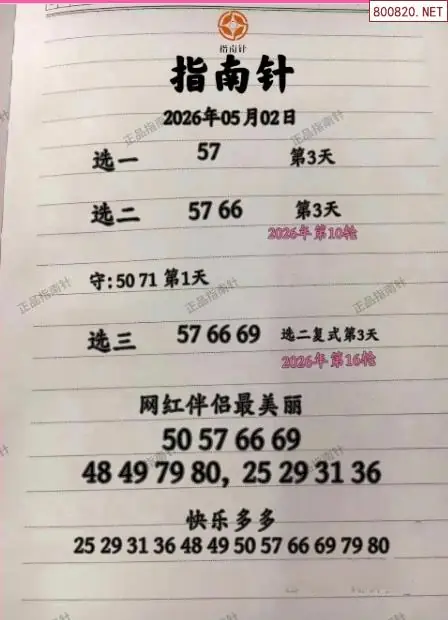 800820.NET
指南针
指南针
2026年05月02日
选一 57 第3天
选二 57 66 第3天
2026年第10轮
守:50 71 第1天
选三 57 66 69 选二复式第3天
2026年第16轮
网红伴侣最美丽
50 57 66 69
48 49 79 80, 25 29 31 36
快乐多多
25 29 31 36 48 49 50 57 66 69 79 80
正品指南针
正品指南针
正品指南针
正品指南针
正品指南针
正品指南针
正品指南针
正品指南针